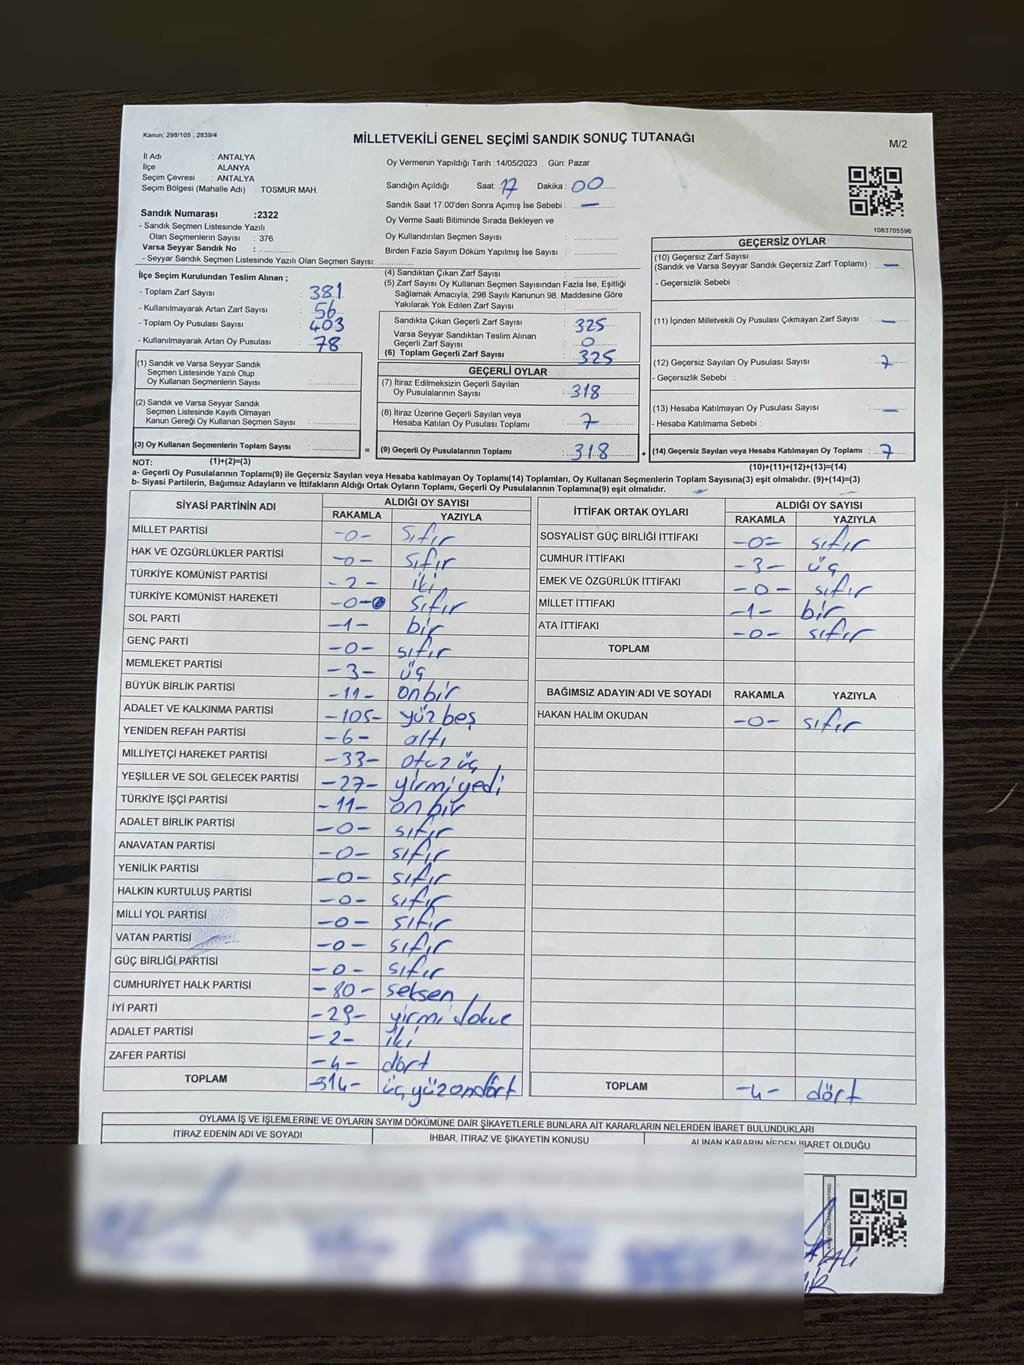 Kanun: 298/105 , 2839/4
MİLLETVEKİLİ GENEL SEÇİMİ SANDIK SONUÇ TUTANAĞI
M/2
İl Adı : ANTALYA
İlçe : ALANYA
Seçim Çevresi : ANTALYA
Seçim Bölgesi (Mahalle Adı) : TOSMUR MAH.
Sandık Numarası :2322
- Sandık Seçmen Listesinde Yazılı
Olan Seçmenlerin Sayısı : 376
Varsa Seyyar Sandık No :
- Seyyar Sandık Seçmen Listesinde Yazılı Olan Seçmen Sayısı:
Oy Vermenin Yapıldığı Tarih :14/05/2023 Gün: Pazar
Sandığın Açıldığı Saat: 17 Dakika : 00
Sandık Saat 17:00'den Sonra Açımış İse Sebebi : -
Oy Verme Saati Bitiminde Sırada Bekleyen ve
Oy Kullandırılan Seçmen Sayısı :
Birden Fazla Sayım Döküm Yapılmış İse Sayısı :
1083705596
İlçe Seçim Kurulundan Teslim Alınan ;
- Toplam Zarf Sayısı : 381
- Kullanılmayarak Artan Zarf Sayısı : 56
- Toplam Oy Pusulası Sayısı : 403
- Kullanılmayarak Artan Oy Pusulası : 78
(1) Sandık ve Varsa Seyyar Sandık
Seçmen Listesinde Yazılı Olup
Oy Kullanan Seçmenlerin Sayısı :
(2) Sandık ve Varsa Seyyar Sandık
Seçmen Listesinde Kayıtlı Olmayan
Kanun Gereği Oy Kullanan Seçmen Sayısı :
(3) Oy Kullanan Seçmenlerin Toplam Sayısı :
(1)+(2)=(3)
(4) Sandıktan Çıkan Zarf Sayısı :
(5) Zarf Sayısı Oy Kullanan Seçmen Sayısından Fazla İse, Eşitliği
Sağlamak Amacıyla, 298 Sayılı Kanunun 98. Maddesine Göre
Yakılarak Yok Edilen Zarf Sayısı :
Sandıkta Çıkan Geçerli Zarf Sayısı : 325
Varsa Seyyar Sandıktan Teslim Alınan
Geçerli Zarf Sayısı : 0
(6) Toplam Geçerli Zarf Sayısı : 325
GEÇERLİ OYLAR
(7) İtiraz Edilmeksizin Geçerli Sayılan
Oy Pusulalarının Sayısı : 318
(8) İtiraz Üzerine Geçerli Sayılan veya
Hesaba Katılan Oy Pusulası Toplamı : 7
= (9) Geçerli Oy Pusulalarının Toplamı : 318 +
GEÇERSİZ OYLAR
(10) Geçersiz Zarf Sayısı
(Sandık ve Varsa Seyyar Sandık Geçersiz Zarf Toplamı) : -
- Geçersizlik Sebebi :
(11) İçinden Milletvekili Oy Pusulası Çıkmayan Zarf Sayısı : -
(12) Geçersiz Sayılan Oy Pusulası Sayısı : 7
- Geçersizlik Sebebi :
(13) Hesaba Katılmayan Oy Pusulası Sayısı : -
- Hesaba Katılmama Sebebi :
(14) Geçersiz Sayılan veya Hesaba Katılmayan Oy Toplamı : 7
(10)+(11)+(12)+(13)=(14)
NOT:
a- Geçerli Oy Pusulalarının Toplamı(9) ile Geçersiz Sayılan veya Hesaba katılmayan Oy Toplamı(14) Toplamları, Oy Kullanan Seçmenlerin Toplam Sayısına(3) eşit olmalıdır. (9)+(14)=(3)
b- Siyasi Partilerin, Bağımsız Adayların ve İttifakların Aldığı Ortak Oyların Toplamı, Geçerli Oy Pusulalarının Toplamına(9) eşit olmalıdır.
SİYASİ PARTİNİN ADI ALDIĞI OY SAYISI
RAKAMLA YAZIYLA
MİLLET PARTİSİ -0- sıfır
HAK VE ÖZGÜRLÜKLER PARTİSİ -0- sıfır
TÜRKİYE KOMÜNİST PARTİSİ -2- iki
TÜRKİYE KOMÜNİST HAREKETİ -0- sıfır
SOL PARTİ -1- bir
GENÇ PARTİ -0- sıfır
MEMLEKET PARTİSİ -3- üç
BÜYÜK BİRLİK PARTİSİ -11- onbir
ADALET VE KALKINMA PARTİSİ -105- yüz beş
YENİDEN REFAH PARTİSİ -6- altı
MİLLİYETÇİ HAREKET PARTİSİ -33- otuz üç
YEŞİLLER VE SOL GELECEK PARTİSİ -27- yirmi yedi
TÜRKİYE İŞÇİ PARTİSİ -11- on bir
ADALET BİRLİK PARTİSİ -0- sıfır
ANAVATAN PARTİSİ -0- sıfır
YENİLİK PARTİSİ -0- sıfır
HALKIN KURTULUŞ PARTİSİ -0- sıfır
MİLLİ YOL PARTİSİ -0- sıfır
VATAN PARTİSİ -0- sıfır
GÜÇ BİRLİĞİ PARTİSİ -0- sıfır
CUMHURİYET HALK PARTİSİ -80- seksen
İYİ PARTİ -29- yirmi dokuz
ADALET PARTİSİ -2- iki
ZAFER PARTİSİ -4- dört
TOPLAM -314- üç yüz ondört
İTTİFAK ORTAK OYLARI ALDIĞI OY SAYISI
RAKAMLA YAZIYLA
SOSYALİST GÜÇ BİRLİĞİ İTTİFAKI -0- sıfır
CUMHUR İTTİFAKI -3- üç
EMEK VE ÖZGÜRLÜK İTTİFAKI -0- sıfır
MİLLET İTTİFAKI -1- bir
ATA İTTİFAKI -0- sıfır
TOPLAM
BAĞIMSIZ ADAYIN ADI VE SOYADI RAKAMLA YAZIYLA
HAKAN HALİM OKUDAN -0- sıfır
TOPLAM -4- dört
OYLAMA İŞ VE İŞLEMLERİNE VE OYLARIN SAYIM DÖKÜMÜNE DAİR ŞİKAYETLERLE BUNLARA AİT KARARLARIN NELERDEN İBARET BULUNDUKLARI
İTİRAZ EDENİN ADI VE SOYADI İHBAR, İTİRAZ VE ŞİKAYETİN KONUSU ALINAN KARARIN NEDEN İBARET OLDUĞU